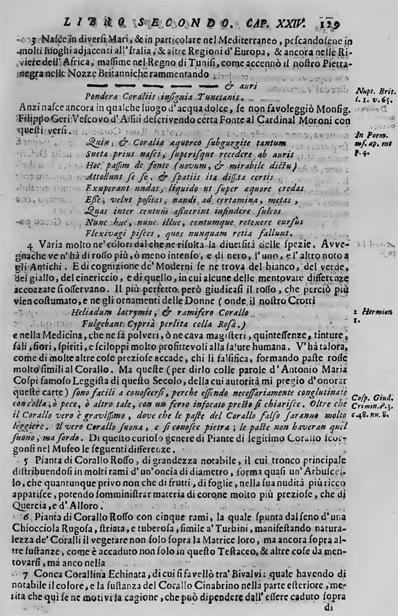 LIBRO SECONDO. CAP. XXIV. 129
3 Nasce in diversi Mari, & in particolare nel Mediterraneo, pescandosene in
molti luoghi adjacenti all'Italia, & altre Regioni d'Europa, & ancora nelle Ri-
viere dell'Africa, massime nel Regno di Tunisi, come accennò il nostro Pietra-
negra nelle Nozze Britanniche rammentando
& auri
Pondera Coraliis insignia Tunetani.
Nupt. Brit.
l. 2. v. 65.
Anzi nasce ancora in qualche luogo d'acqua dolce, se non favoleggiò Monsig.
Filippo Geri Vescovo d'Assisi descrivendo certa Fonte al Cardinal Moroni con
questi versi.
In Poem.
ms. ap. me
p. 4.
Quin, & Coralia aquoreo subgurgite tantum
Sueta prius nasci, superisque recedere ab auris
Hoc passim de fonte (novum, & mirabile dictu)
Attollunt se se, & spatiis ita dissita certis
Exuperant undas, liquido ut super aquore credas
Esse, velut positas, naudi ad certamina, metas,
Quas inter centum assuerint infindere sulcos
Nunc huc, nunc illuc, centumque, retexere cursus
Flexivagi pisces, quos nunquam retia fallunt.
4 Varia molto ne' colori dal che ne risulta la diversità delle spezie. Avve-
gnache ve n'hà di rosso più, ò meno intenso, e di nero, l'uno, e l'altro noto a
gli Antichi. E di cognizione de' Moderni se ne trova del bianco, del verde,
del giallo, del cinericcio, e di quello, in cui alcune delle mentovate differenze
accozzate si osservano. Il più perfetto però giudicasi il rosso, che perciò più
vien costumato, e ne gli ornamenti delle Donne (onde il nostro Crotti
Heliadum lacrymis, & ramifero Corallo
Fulgebant Cypriâ perlita colla Rosâ.)
2 Hermion
8.
e nella Medicina, che ne fà polveri, ò ne cava magisteri, quintessenze, tinture,
sali, fiori, spiriti, e sciloppi molto profittevoli alla salute humana. V'hà talora,
come di molte altre cose preziose accade, chi li falsifica, formando paste rosse
molto simili al Corallo. Ma queste (per dirlo colle parole d'Antonio Maria
Cospi famoso Leggista di questo Secolo, della cui autorità mi pregio d'onorar
queste carte) sono facili a conoscersi, perche essendo necessariamente conglutinate
con colla, ò pece, ò altro tale, con un ferro infocato presto si chiarisce. Oltre che
il Corallo vero è gravissimo, dove che le paste del Corallo falso saranno molto
leggiere. Il vero Corallo suona, e si conosce pietra; le paste non haveran quel
suono, ma sordo. Di questo curioso genere di Piante di legitimo Corallo scor-
gonsi nel Museo le seguenti differenze.
Cosp. Giud.
Crimin. P. 3.
c. 48. nu. 8.
5 Pianta di Corallo Rosso, di grandezza notabile, il cui tronco principale
distribuendosi in molti rami d'un'oncia di diametro, forma quasi un'Arbusce-
lo, che quantunque privo non che di frutti, di foglie, nella sua nudità più ricco
apparisce, potendo somministrar materia di corone molto più preziose, che di
Quercia, e d'Alloro.
6 Pianta di Corallo Rosso con cinque rami, la quale spunta dal seno d'una
Chiocciola Rugosa, striata, e tuberosa, simile a' Turbini, manifestando natura-
lezza de' Coralli il vegetare non solo sopra la Matrice loro, ma ancora sopra al-
tre sustanze, come è accaduto non solo in questo Testaceo, & altre cose da men-
tovarsi, ma anco nella
7 Conca Corallina Echinata, di cui si favellò trà' Bivalvi: quale havendo di
notabile il colore, e la sustanza del Corallo Cinabrino nella parte esteriore, me-
rita che quì se ne motivi la cagione, che può dipendere dall'essere caduto sopra
di